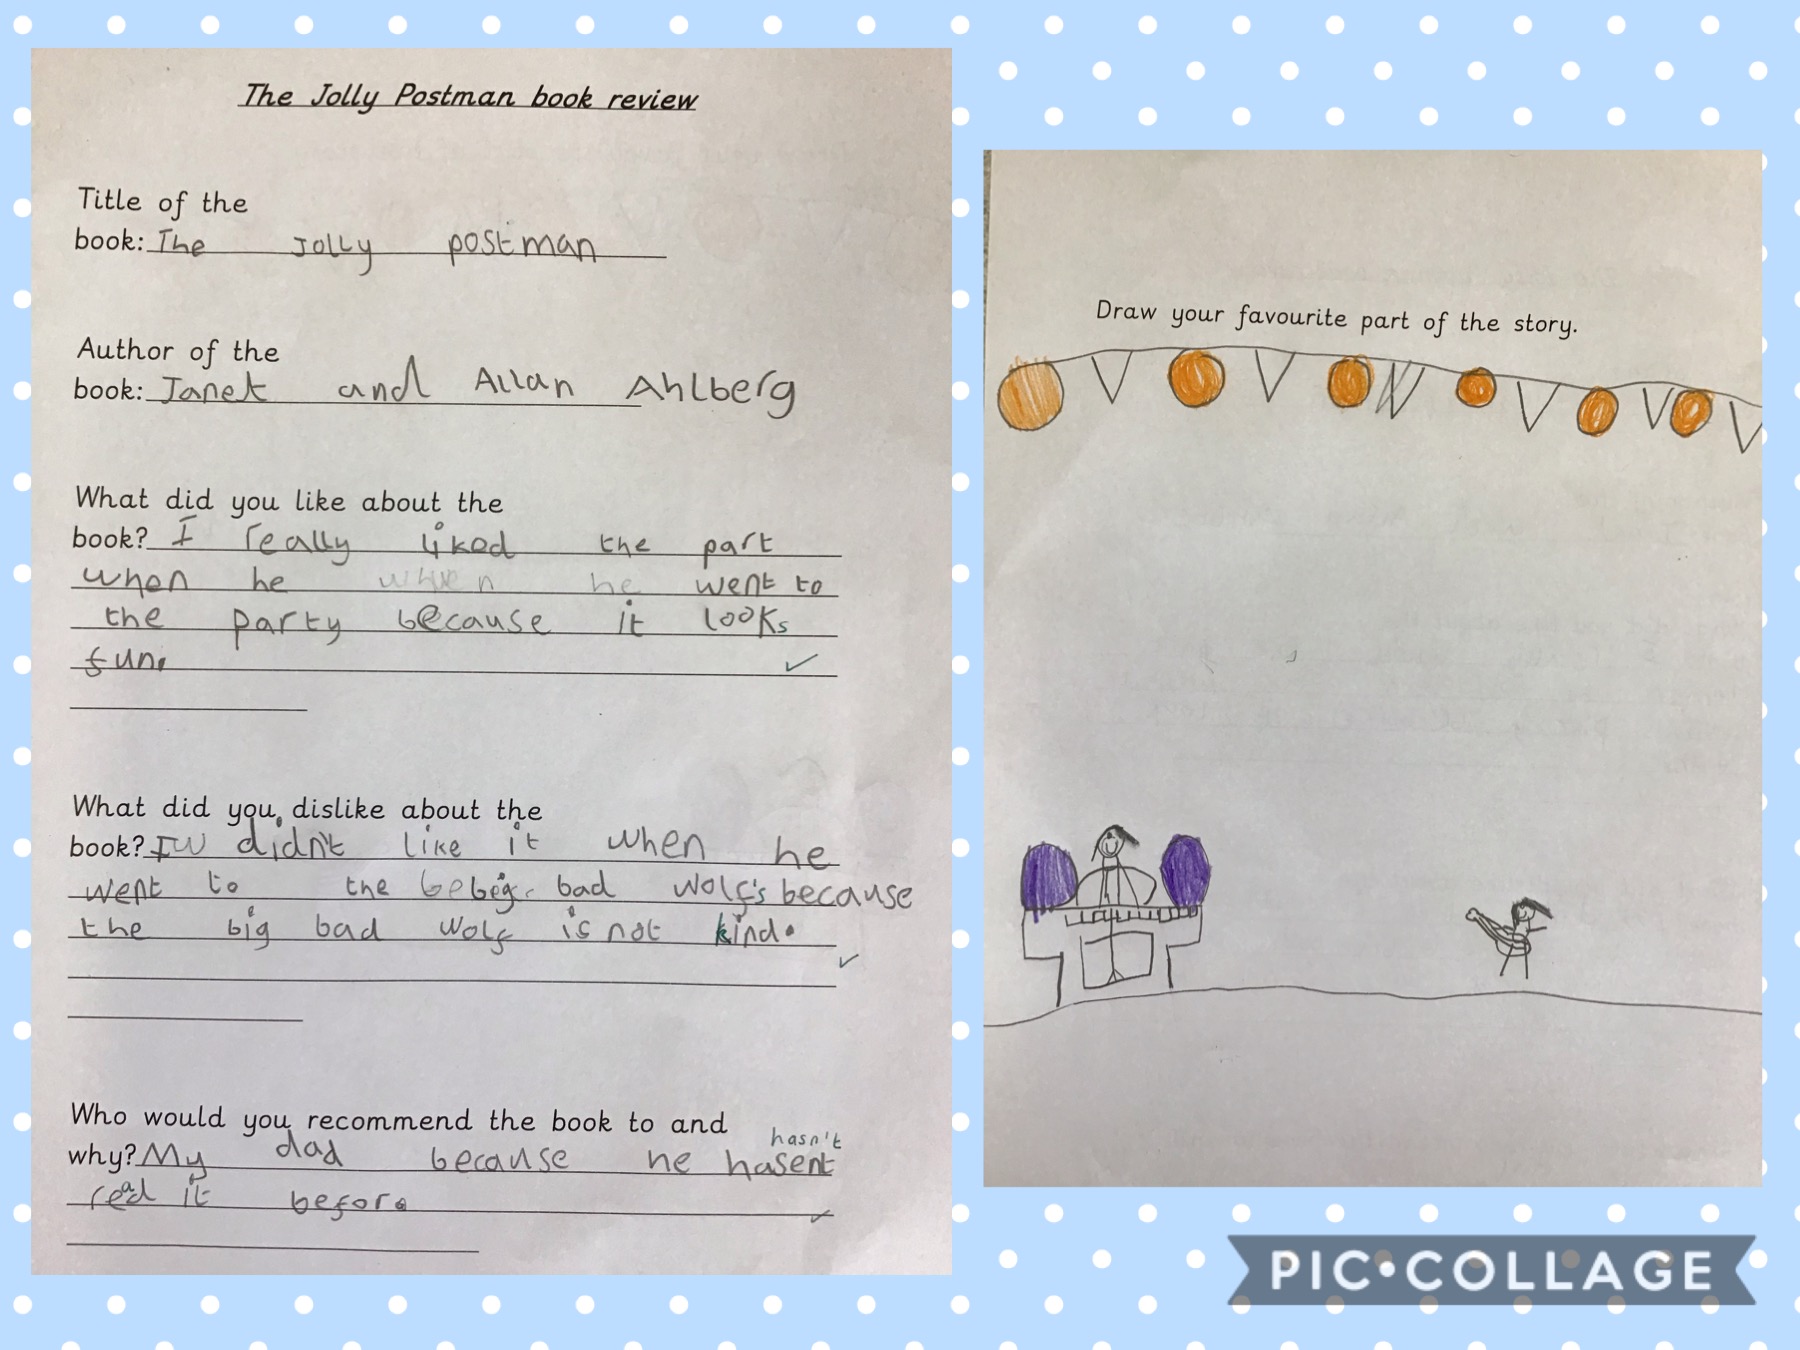 The Jolly Postman book review
Title of the
book: The Jolly postman
Author of the
book: Janet and Allan Ahlberg
What did you like about the
book? I really liked the part
when he when he went to
the party because it looks
fun.
✓
What did you dislike about the
book? I didn't like it when he
went to the big bad wolf's because
the big bad wolf is not kind.
✓
Who would you recommend the book to and
hasn't
why? My dad because he hasent
read it before
✓
Draw your favourite part of the story.
PIC•COLLAGE